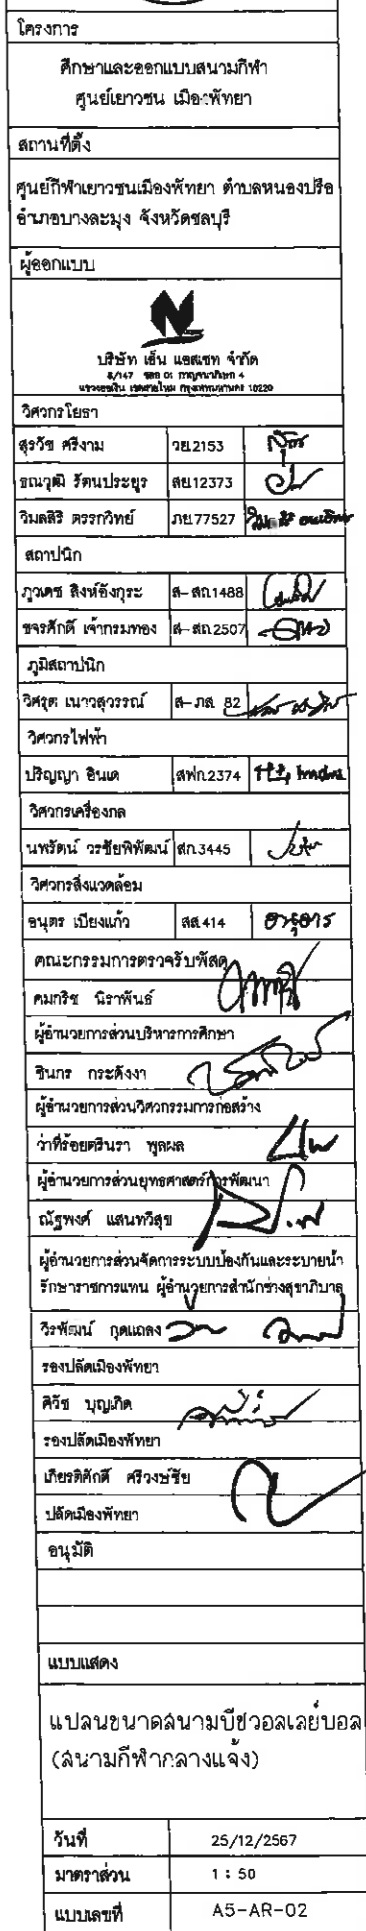 โครงการ
ศึกษาและออกแบบสนามกีฬา
ศูนย์เยาวชน เมืองพัทยา
สถานที่ตั้ง
ศูนย์กีฬาเยาวชนเมืองพัทยา ตำบลหนองปรือ
อำเภอบางละมุง จังหวัดชลบุรี
ผู้ออกแบบ
บริษัท เอ็น แอสเซท จำกัด
8/147 ซอย 01 กาญจนาภิเษก 4
กรุงเทพมหานคร 10220
วิศวกรโยธา
สุรวัช ศรีงาม วย.2153
ธณวุฒิ รัตนประยูร สย.12373
วิมลสิริ ตรรกวิทย์ ภย.77527
สถาปนิก
ภูวเดช สิงห์อังกุระ ส-สถ.1488
ขจรศักดิ์ เจ้ากรมทอง ส-สถ.2507
ภูมิสถาปนิก
วิศรุต เนาวสุวรรณ์ ส-ภส. 82
วิศวกรไฟฟ้า
ปริญญา อินเด สฟก.2374
วิศวกรเครื่องกล
นพรัตน์ วรชัยพิพัฒน์ สก.3445
วิศวกรสิ่งแวดล้อม
อนุตร เบียงแก้ว สส.414
คณะกรรมการตรวจรับพัสดุ
คมกริช นิราพันธ์
ผู้อำนวยการส่วนบริหารการศึกษา
ชินกร กระดังงา
ผู้อำนวยการส่วนวิศวกรรมการก่อสร้าง
ว่าที่ร้อยตรีนรา พูลผล
ผู้อำนวยการส่วนยุทธศาสตร์การพัฒนา
ณัฐพงศ์ แสนทวีสุข
ผู้อำนวยการส่วนจัดการระบบป้องกันและระบายน้ำ
รักษาราชการแทน ผู้อำนวยการสำนักช่างสุขาภิบาล
วิรพัฒน์ กุดแถลง
รองปลัดเมืองพัทยา
ศิวัช บุญเกิด
รองปลัดเมืองพัทยา
เกียรติศักดิ์ ศรีวงษ์ชัย
ปลัดเมืองพัทยา
อนุมัติ
แบบแสดง
แปลนขนาดสนามบีชวอลเลย์บอล
(สนามกีฬากลางแจ้ง)
วันที่ 25/12/2567
มาตราส่วน 1 : 50
แบบเลขที่ A5-AR-02